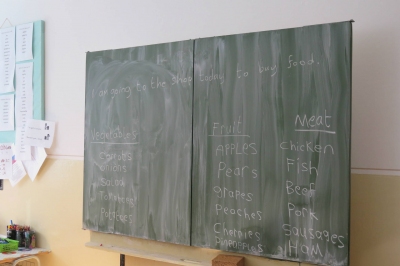 am going to the shop today to buy food.
Vegetables
Carrots
Onions
Salad
Tomatoes
Potatoes
Fruit
APPLES
Pears
grapes
Peaches
Cherries
PINEAPPLES
Meat
chicken
Fish
Beef
Pork
Sausages
HAM